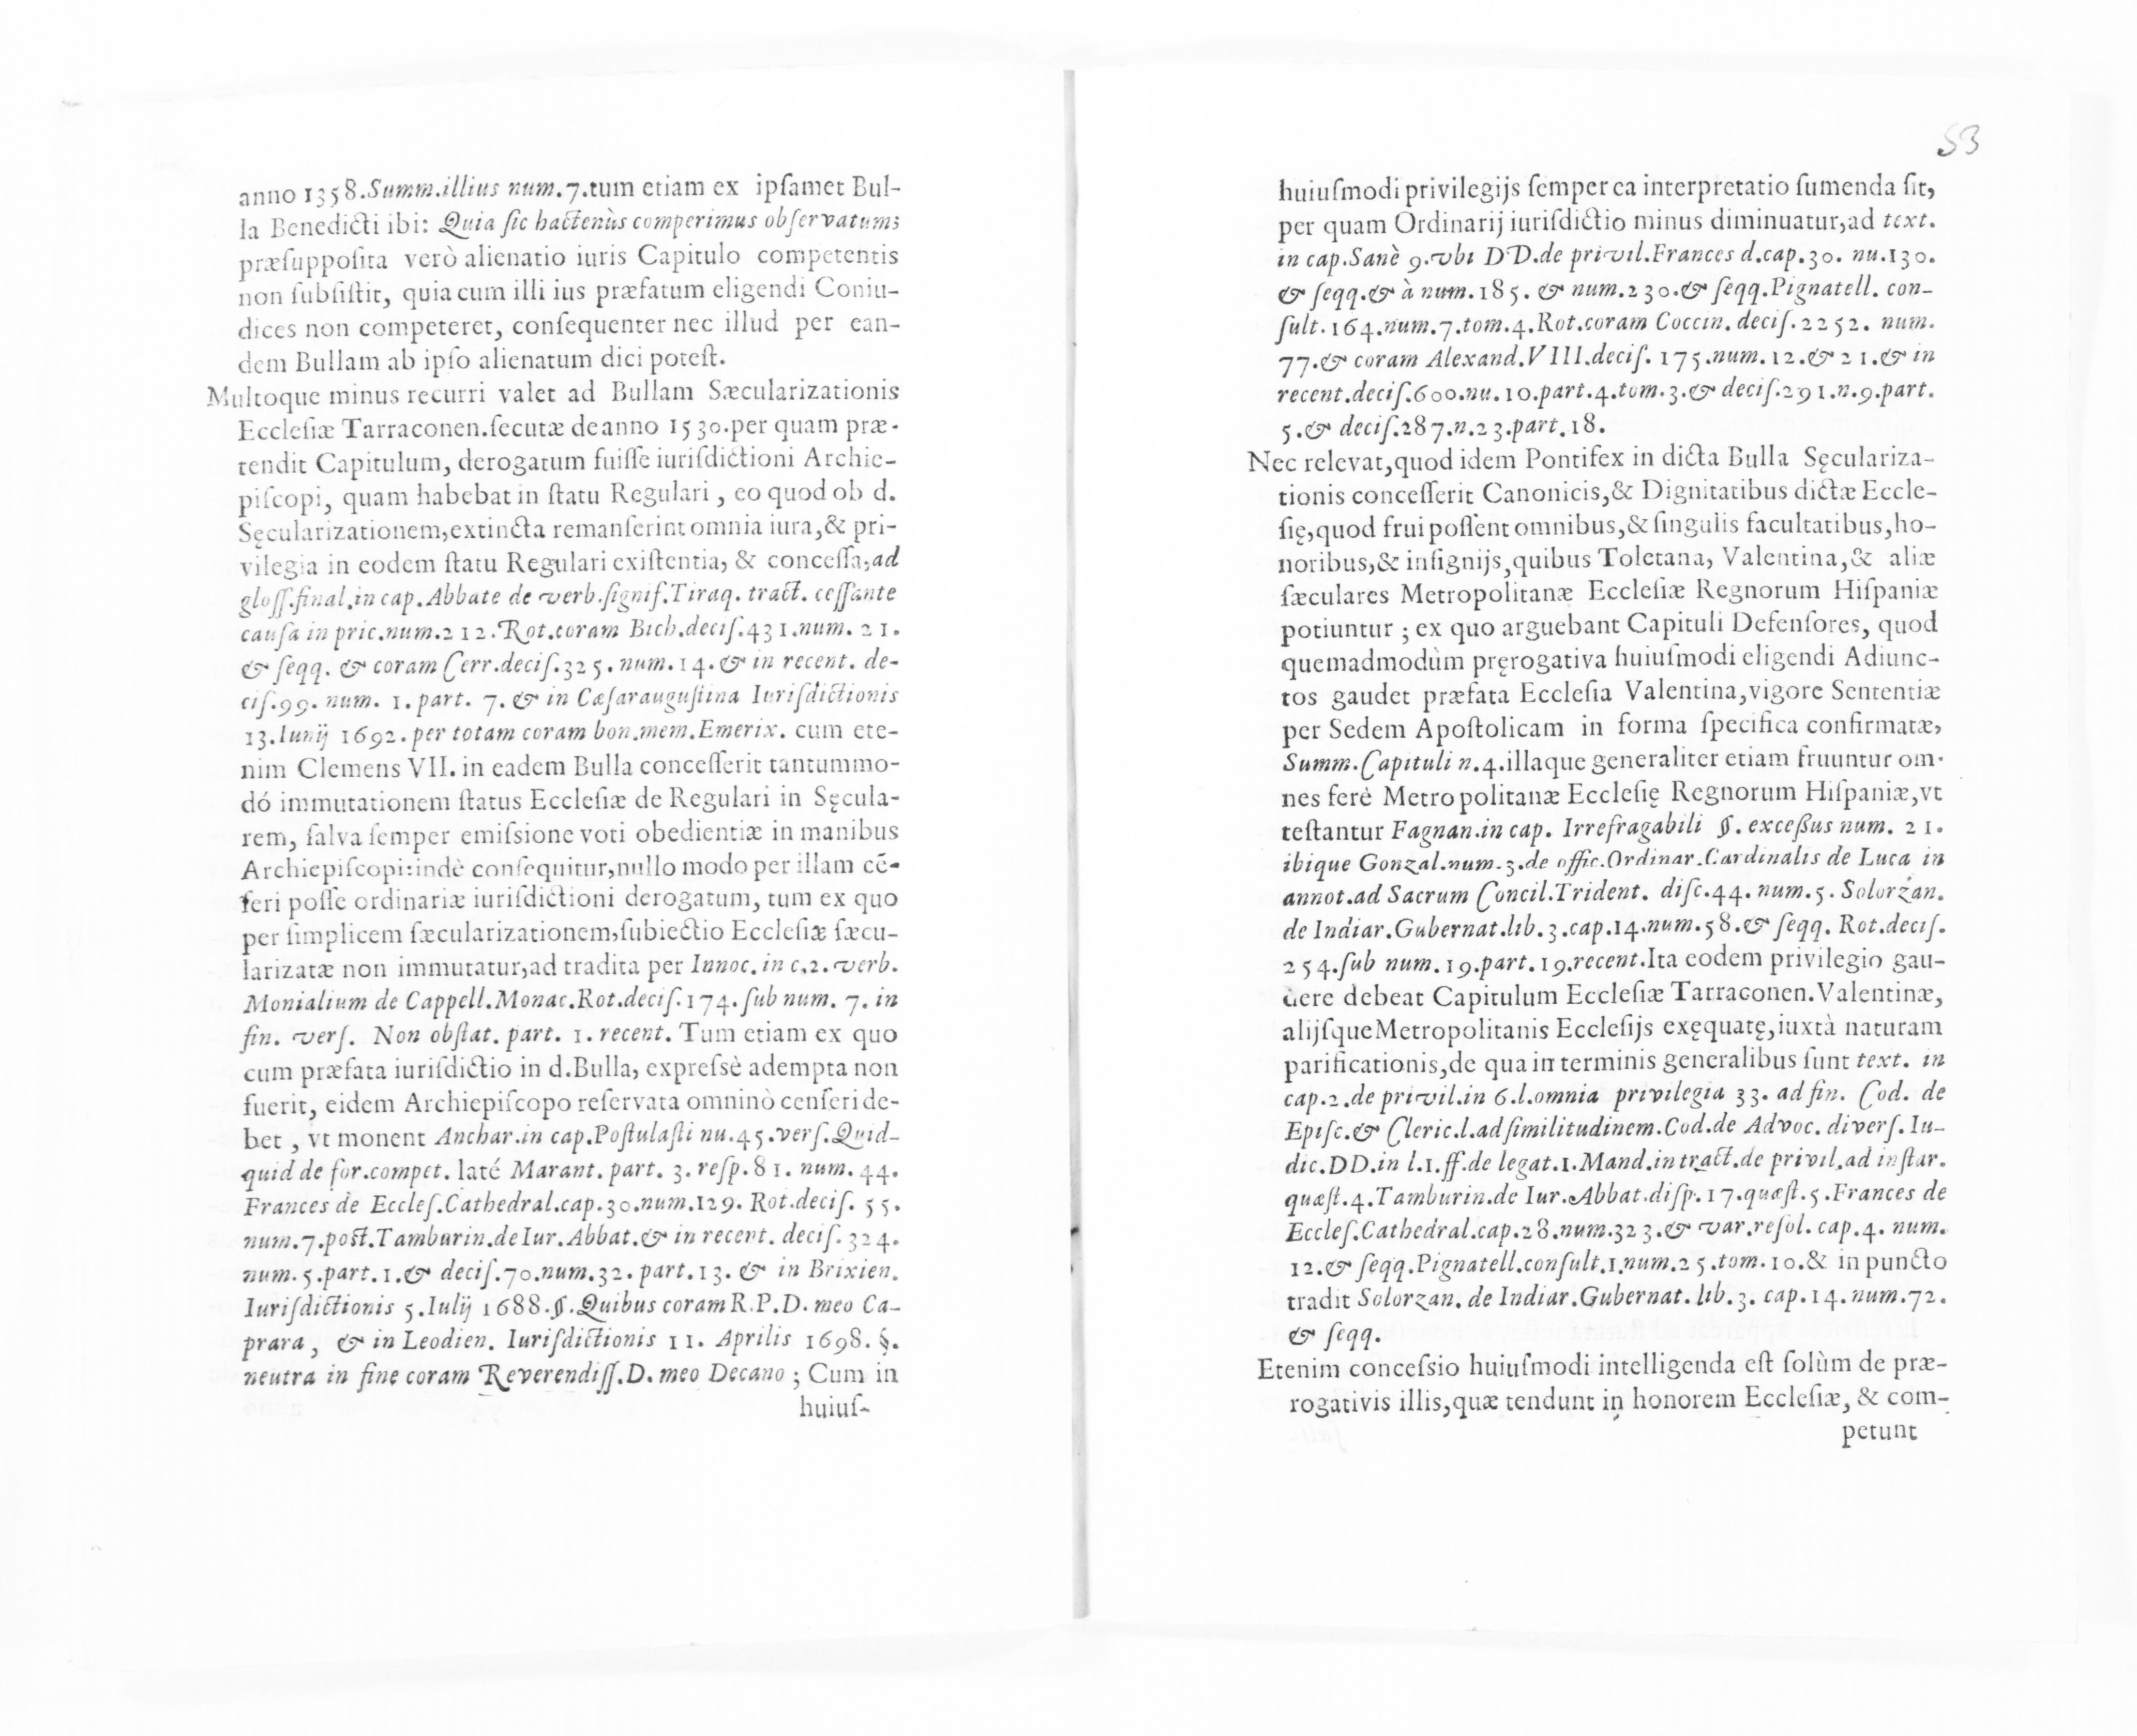 anno 1358.Summ.illius num.7.tum etiam ex ipſamet Bul-
la Benedicti ibi: Quia ſic hactenùs comperimus obſervatum;
præſuppoſita verò alienatio iuris Capitulo competentis
non ſubſiſtit, quia cum illi ius præfatum eligendi Coniu-
dices non competeret, conſequenter nec illud per ean-
dem Bullam ab ipſo alienatum dici poteſt.
Multoque minus recurri valet ad Bullam Sæcularizationis
Eccleſiæ Tarraconen.ſecutæ de anno 1530.per quam præ-
tendit Capitulum, derogatum fuiſſe iuriſdictioni Archie-
piſcopi, quam habebat in ſtatu Regulari, eo quod ob d.
Sęcularizationem,extincta remanſerint omnia iura,& pri-
vilegia in eodem ſtatu Regulari exiſtentia, & conceſſa,ad
gloſſ.final.in cap.Abbate de verb.ſignif.Tiraq. tract. ceſſante
cauſa in pric.num.212.Rot.coram Bich.deciſ.431.num. 21.
& ſeqq. & coram Cerr.deciſ.325. num.14.& in recent. de-
ciſ.99. num. 1. part. 7. & in Cæſarauguſtina Iuriſdictionis
13.Iunij 1692.per totam coram bon.mem.Emerix. cum ete-
nim Clemens VII. in eadem Bulla conceſſerit tantummo-
dó immutationem ſtatus Eccleſiæ de Regulari in Sęcula-
rem, ſalva ſemper emiſsione voti obedientiæ in manibus
Archiepiſcopi:indè conſequitur,nullo modo per illam cē-
ſeri poſſe ordinariæ iuriſdictioni derogatum, tum ex quo
per ſimplicem ſæcularizationem,ſubiectio Eccleſiæ ſæcu-
larizatæ non immutatur,ad tradita per Innoc. in c.2. verb.
Monialium de Cappell.Monac.Rot.deciſ.174. ſub num. 7. in
fin. verſ. Non obſtat. part. 1. recent. Tum etiam ex quo
cum præfata iuriſdictio in d.Bulla, expreſsè adempta non
fuerit, eidem Archiepiſcopo reſervata omninò cenſeri de-
bet , vt monent Anchar.in cap.Poſtulaſti nu.45.verſ.Quid-
quid de for.compet. laté Marant. part. 3. reſp.81. num. 44.
Frances de Eccleſ.Cathedral.cap.30.num.129. Rot.deciſ. 55.
num.7.poſt.Tamburin.de Iur. Abbat.& in recent. deciſ. 324.
num. 5.part.1.& deciſ.70.num.32. part.13. & in Brixien.
Iuriſdictionis 5.Iulij 1688.§.Quibus coram R.P.D. meo Ca-
prara , & in Leodien. Iuriſdictionis 11. Aprilis 1698. §.
neutra in fine coram Reverendiſſ.D. meo Decano ; Cum in
huiuſ-
53
huiuſmodi privilegijs ſemper ea interpretatio ſumenda ſit,
per quam Ordinarij iuriſdictio minus diminuatur,ad text.
in cap.Sanè 9.vbi DD.de privil.Frances d.cap.30. nu.130.
& ſeqq.& à num.185. & num.230.& ſeqq.Pignatell. con-
ſult.164.num.7.tom.4.Rot.coram Coccin. deciſ.2252. num.
77.& coram Alexand.VIII.deciſ. 175.num.12.& 21.& in
recent.deciſ.600.nu.10.part.4.tom.3.& deciſ.291.n.9.part.
5.& deciſ.287.n.23.part.18.
Nec relevat,quod idem Pontifex in dicta Bulla Sęculariza-
tionis conceſſerit Canonicis,& Dignitatibus dictæ Eccle-
ſię,quod frui poſſent omnibus,& ſingulis facultatibus,ho-
noribus,& inſignijs,quibus Toletana, Valentina,& aliæ
ſæculares Metropolitanæ Eccleſiæ Regnorum Hiſpaniæ
potiuntur ; ex quo arguebant Capituli Defenſores, quod
quemadmodùm pręrogativa huiuſmodi eligendi Adiunc-
tos gaudet præfata Eccleſia Valentina,vigore Sententiæ
per Sedem Apoſtolicam in forma ſpecifica confirmatæ,
Summ.Capituli n.4.illaque generaliter etiam fruuntur om-
nes ferè Metropolitanæ Eccleſię Regnorum Hiſpaniæ,vt
teſtantur Fagnan.in cap. Irrefragabili §. exceßus num. 21.
ibique Gonzal.num.3.de offic.Ordinar.Cardinalis de Luca in
annot.ad Sacrum Concil.Trident. diſc.44. num.5. Solorzan.
de Indiar.Gubernat.lib. 3.cap.14.num.58.& ſeqq. Rot.deciſ.
254.ſub num.19.part.19.recent.Ita eodem privilegio gau-
dere debeat Capitulum Eccleſiæ Tarraconen.Valentinæ,
alijſque Metropolitanis Eccleſijs exęquatę,iuxtà naturam
parificationis,de qua in terminis generalibus ſunt text. in
cap.2.de privil.in 6.l.omnia privilegia 33. ad fin. Cod. de
Epiſc.& Cleric.l.ad ſimilitudinem.Cod.de Advoc. diverſ. Iu-
dic.DD.in l.1.ff.de legat.1.Mand.in tract.de privil.ad inſtar.
quæſt.4.Tamburin.de Iur.Abbat.diſp.17.quæſt.5.Frances de
Eccleſ.Cathedral.cap.28.num.323.& var.reſol. cap.4. num.
12.& ſeqq.Pignatell.conſult.1.num.25.tom.10.& in puncto
tradit Solorzan. de Indiar.Gubernat. lib.3. cap.14.num.72.
& ſeqq.
Etenim conceſsio huiuſmodi intelligenda eſt ſolùm de præ-
rogativis illis,quæ tendunt in honorem Eccleſiæ, & com-
petunt